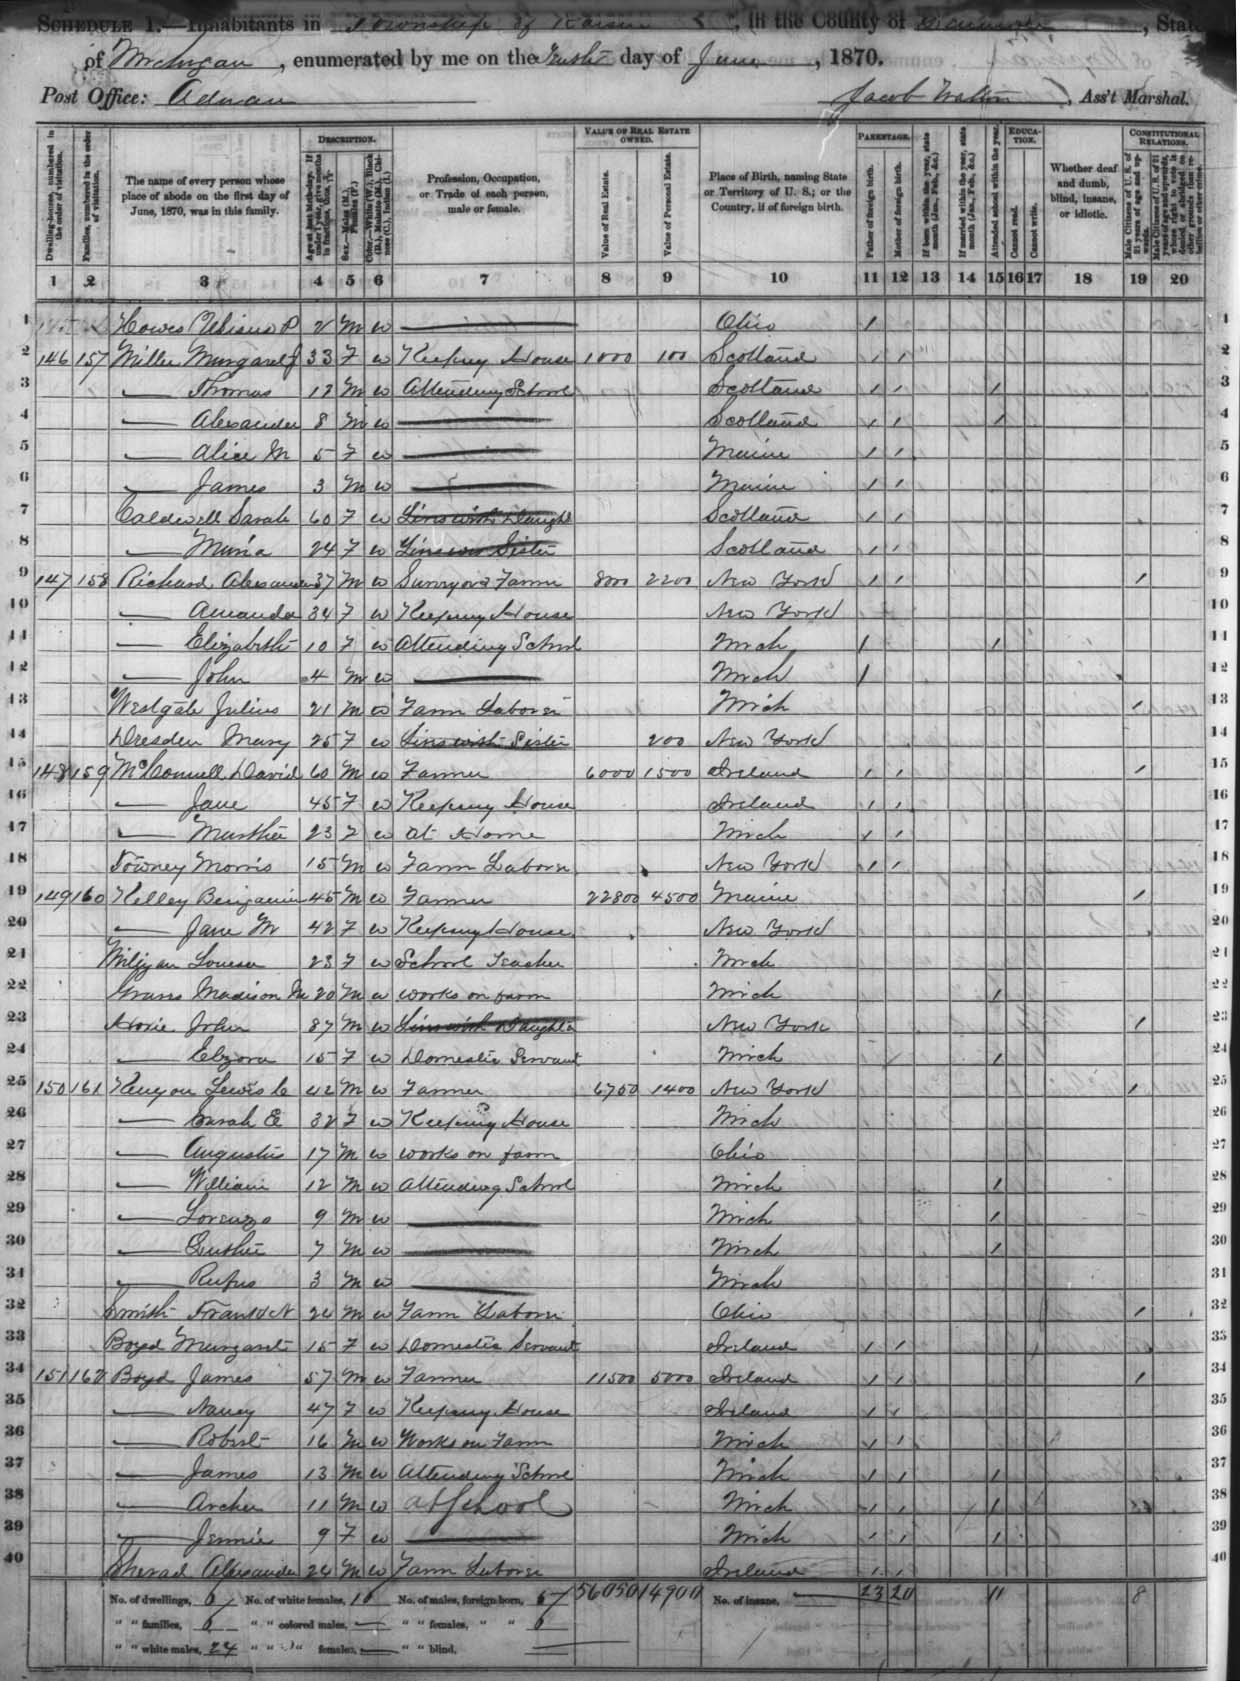 SCHEDULE 1.—Inhabitants in Township of Raisin, in the County of Lenawee, State
of Michigan, enumerated by me on the day of June, 1870.
Post Office: Adrian Jacob Walton, Ass't Marshal.
DESCRIPTION. VALUE OF REAL ESTATE OWNED. PARENTAGE. EDUCATION. CONSTITUTIONAL RELATIONS.
Dwelling-houses, numbered in the order of visitation.
Families, numbered in the order of visitation.
The name of every person whose place of abode on the first day of June, 1870, was in this family.
Profession, Occupation, or Trade of each person, male or female.
Value of Real Estate.
Value of Personal Estate.
Place of Birth, naming State or Territory of U. S.; or the Country, if of foreign birth.
Father of foreign birth.
Mother of foreign birth.
If born within the year, state month (Jan., Feb., &c.)
If married within the year, state month (Jan., Feb., &c.)
Attended school within the year.
Cannot read.
Cannot write.
Whether deaf and dumb, blind, insane, or idiotic.
1 2 3 4 5 6 7 8 9 10 11 12 13 14 15 16 17 18 19 20
1 Howes P 2 M W Ohio 1 1
2 146 157 Miller Margaret J 33 F W Keeping House 1000 100 Scotland 1 1 2
3 — Thomas M W Attending School Scotland 1 1 1 3
4 — Alexander 8 M W Scotland 1 1 1 4
5 — Alice M 5 F W Maine 1 1 5
6 — James 3 M W Maine 1 1 6
7 Caldwell Sarah 60 F W Lives with Daught Scotland 1 1 7
8 — Maria 24 F W Lives w Sister Scotland 1 1 8
9 147 158 Richard Alexander 37 M W Surveyor & Farmer 800 2200 New York 1 1 1 9
10 — Amanda 34 F W Keeping House New York 10
11 — Elizabeth 10 F W Attending School Mich 1 1 11
12 — John 4 M W Mich 1 12
13 Westgate Julius 21 M W Farm Laborer Mich 1 13
14 Dresden Mary 25 F W Lives with Sister 200 New York 14
15 148 159 McConnell David 60 M W Farmer 6000 1500 Ireland 1 1 1 15
16 — Jane 45 F W Keeping House Ireland 1 1 16
17 — Martha 23 F W At Home Mich 1 1 17
18 Towney Morris 15 M W Farm Laborer New York 1 1 18
19 149 160 Kelley Benjamin 45 M W Farmer 22800 4500 Maine 1 19
20 — Jane M 42 F W Keeping House New York 20
21 Louesa 23 F W School Teacher Mich 21
22 Madison M 20 M W works on farm Mich 1 22
23 Hoxie John 87 M W Lives with Daughter New York 1 23
24 — Elzora 15 F W Domestic Servant Mich 1 24
25 150 161 Kenyon Lewis C 42 M W Farmer 6750 1400 New York 1 25
26 — Sarah E 32 F W Keeping House Mich 26
27 — Augustus 17 M W works on farm Ohio 27
28 — William 12 M W Attending School Mich 1 28
29 — Lorenzo 9 M W Mich 1 29
30 — 7 M W Mich 1 30
31 — Rufus 3 M W Mich 31
32 Smith Frank N 24 M W Farm Laborer Ohio 1 32
33 Boyd Margaret 15 F W Domestic Servant Ireland 1 1 33
34 151 162 Boyd James 57 M W Farmer 11500 5000 Ireland 1 1 1 34
35 — Nancy 47 F W Keeping House Ireland 1 1 35
36 — Robert 16 M W Works on Farm Mich 1 1 36
37 — James 13 M W Attending School Mich 1 1 1 37
38 — Archer 11 M W at school Mich 1 1 1 38
39 — Jennie 9 F W Mich 1 1 1 39
40 Sherad Alexander 24 M W Farm Laborer Ireland 1 1 40
No. of dwellings, 6 No. of white females, 16 No. of males, foreign-born, 56050 14900 No. of insane, 23 20 11 8
" " families, " " colored males, — " " females, " " 6
" " white males, 24 " " " females, — " " blind, —